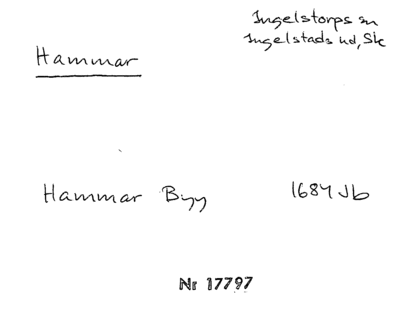 Ingelstorps sn
Ingelstads hd, Sk
Hammar
Hammar Byy 1684 Jb
Nr 17797